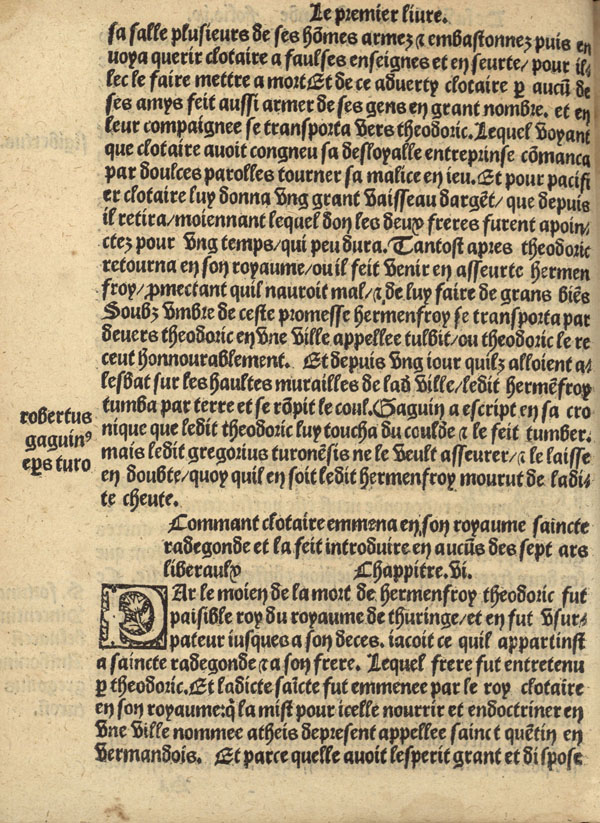 Le premier liure.
sa salle plusieurs de ses hõmes armez ⁊ embastonnez puis en
uoya querir clotaire a faulses enseignes et en seurte/ pour il⸗
lec le faire mettre a mort Et de ce aduerty clotaire ꝑ aucũ de
ses amys feit aussi armer de ses gens en grant nombre. et en
leur compaignee se transporta vers theodoric. Lequel voyant
que clotaire auoit congneu sa desloyalle entreprinse cõmanca
par doulces parolles tourner sa malice en ieu. Et pour pacifi
er clotaire luy donna vng grant vaisseau dargẽt/ que depuis
il retira/moiennant lequel don les deux freres furent apoin⸗
ctez pour vng temps/qui peu dura. Tantost apres theodoric
retourna en son royaume/ou il feit venir en asseurte hermen
froy/ ꝓmectant quil nauroit mal/⁊ de luy faire de grans biẽs
Soubz vmbre de ceste promesse hermenfroy se transporta par
deuers theodoric en vne ville appellee tulbit/ou theodoric le re
ceut honnourablement. Et depuis vng iour quilz alloient a⸗
lesbat sur les haultes murailles de lad ville/ledit hermẽfroy
tumba par terre et se rõpit le coul. Gaguin a escript en sa cro
nique que ledit theodoric luy toucha du coulde ⁊ le feit tumber.
mais ledit gregorius turonẽsis ne le veult asseurer/⁊ le laisse
en doubte/quoy quil en soit ledit hermenfroy mourut de ladi⸗
te cheute.
robertus
gaguinꝰ
ep̃s turo
Commant clotaire emmena en son royaume saincte
radegonde et la feit introduire en aucũs des sept ars
liberaulx Chappitre. vi.
PAr le moien de la mort de hermenfroy theodoric fut
paisible roy du royaume de thuringe/et en fut vsur⸗
pateur iusques a son deces. iacoit ce quil appartinst
a saincte radegonde ⁊ a son frere. Lequel frere fut entretenu
ꝑ theodoric. Et ladicte saĩcte fut emmenee par le roy clotaire
en son royaume: q̃ la mist pour icelle nourrir et endoctriner en
vne ville nommee atheis depresent appellee sainct quẽtin en
vermandois. Et parce quelle auoit lesperit grant et dispose